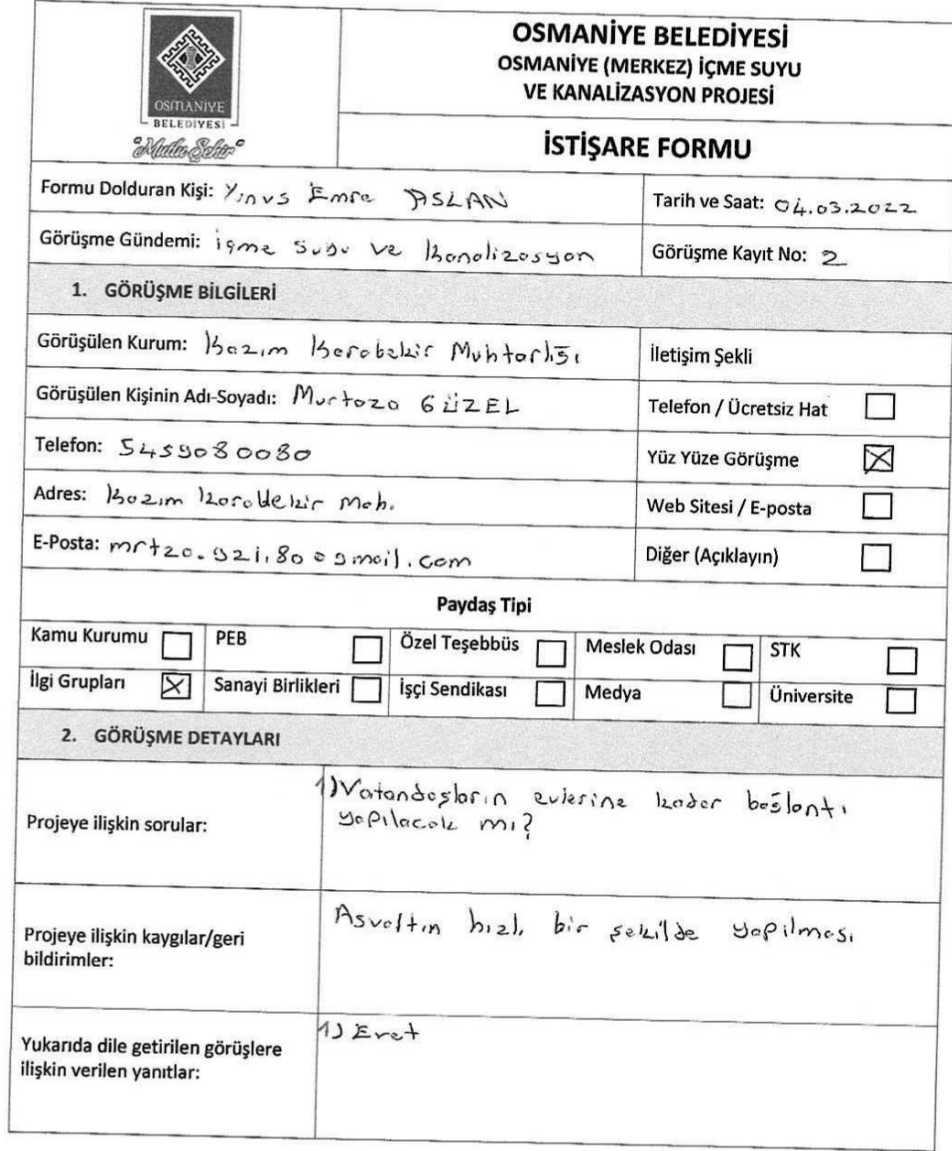 OSMANİYE
BELEDİYESİ
"Mutlu Şehir"
OSMANİYE BELEDİYESİ
OSMANİYE (MERKEZ) İÇME SUYU
VE KANALİZASYON PROJESİ
İSTİŞARE FORMU
Formu Dolduran Kişi: Yunus Emre ASLAN
Tarih ve Saat: 04.03.2022
Görüşme Gündemi: içme suyu ve Kanalizasyon
Görüşme Kayıt No: 2
1. GÖRÜŞME BİLGİLERİ
Görüşülen Kurum: Kazım Karabekir Muhtarlığı
İletişim Şekli
Görüşülen Kişinin Adı-Soyadı: Murtaza GÜZEL
Telefon / Ücretsiz Hat
Telefon: 5459080080
Yüz Yüze Görüşme
Adres: Kazım Karabekir Mah.
Web Sitesi / E-posta
E-Posta:
Diğer (Açıklayın)
Paydaş Tipi
Kamu Kurumu PEB Özel Teşebbüs Meslek Odası STK
İlgi Grupları Sanayi Birlikleri İşçi Sendikası Medya Üniversite
2. GÖRÜŞME DETAYLARI
Projeye ilişkin sorular:
1) Vatandaşların evlerine kadar bağlantı
yapılacak mı?
Projeye ilişkin kaygılar/geri
bildirimler:
Asvaltın hızlı bir şekilde yapılması
Yukarıda dile getirilen görüşlere
ilişkin verilen yanıtlar:
1) Evet